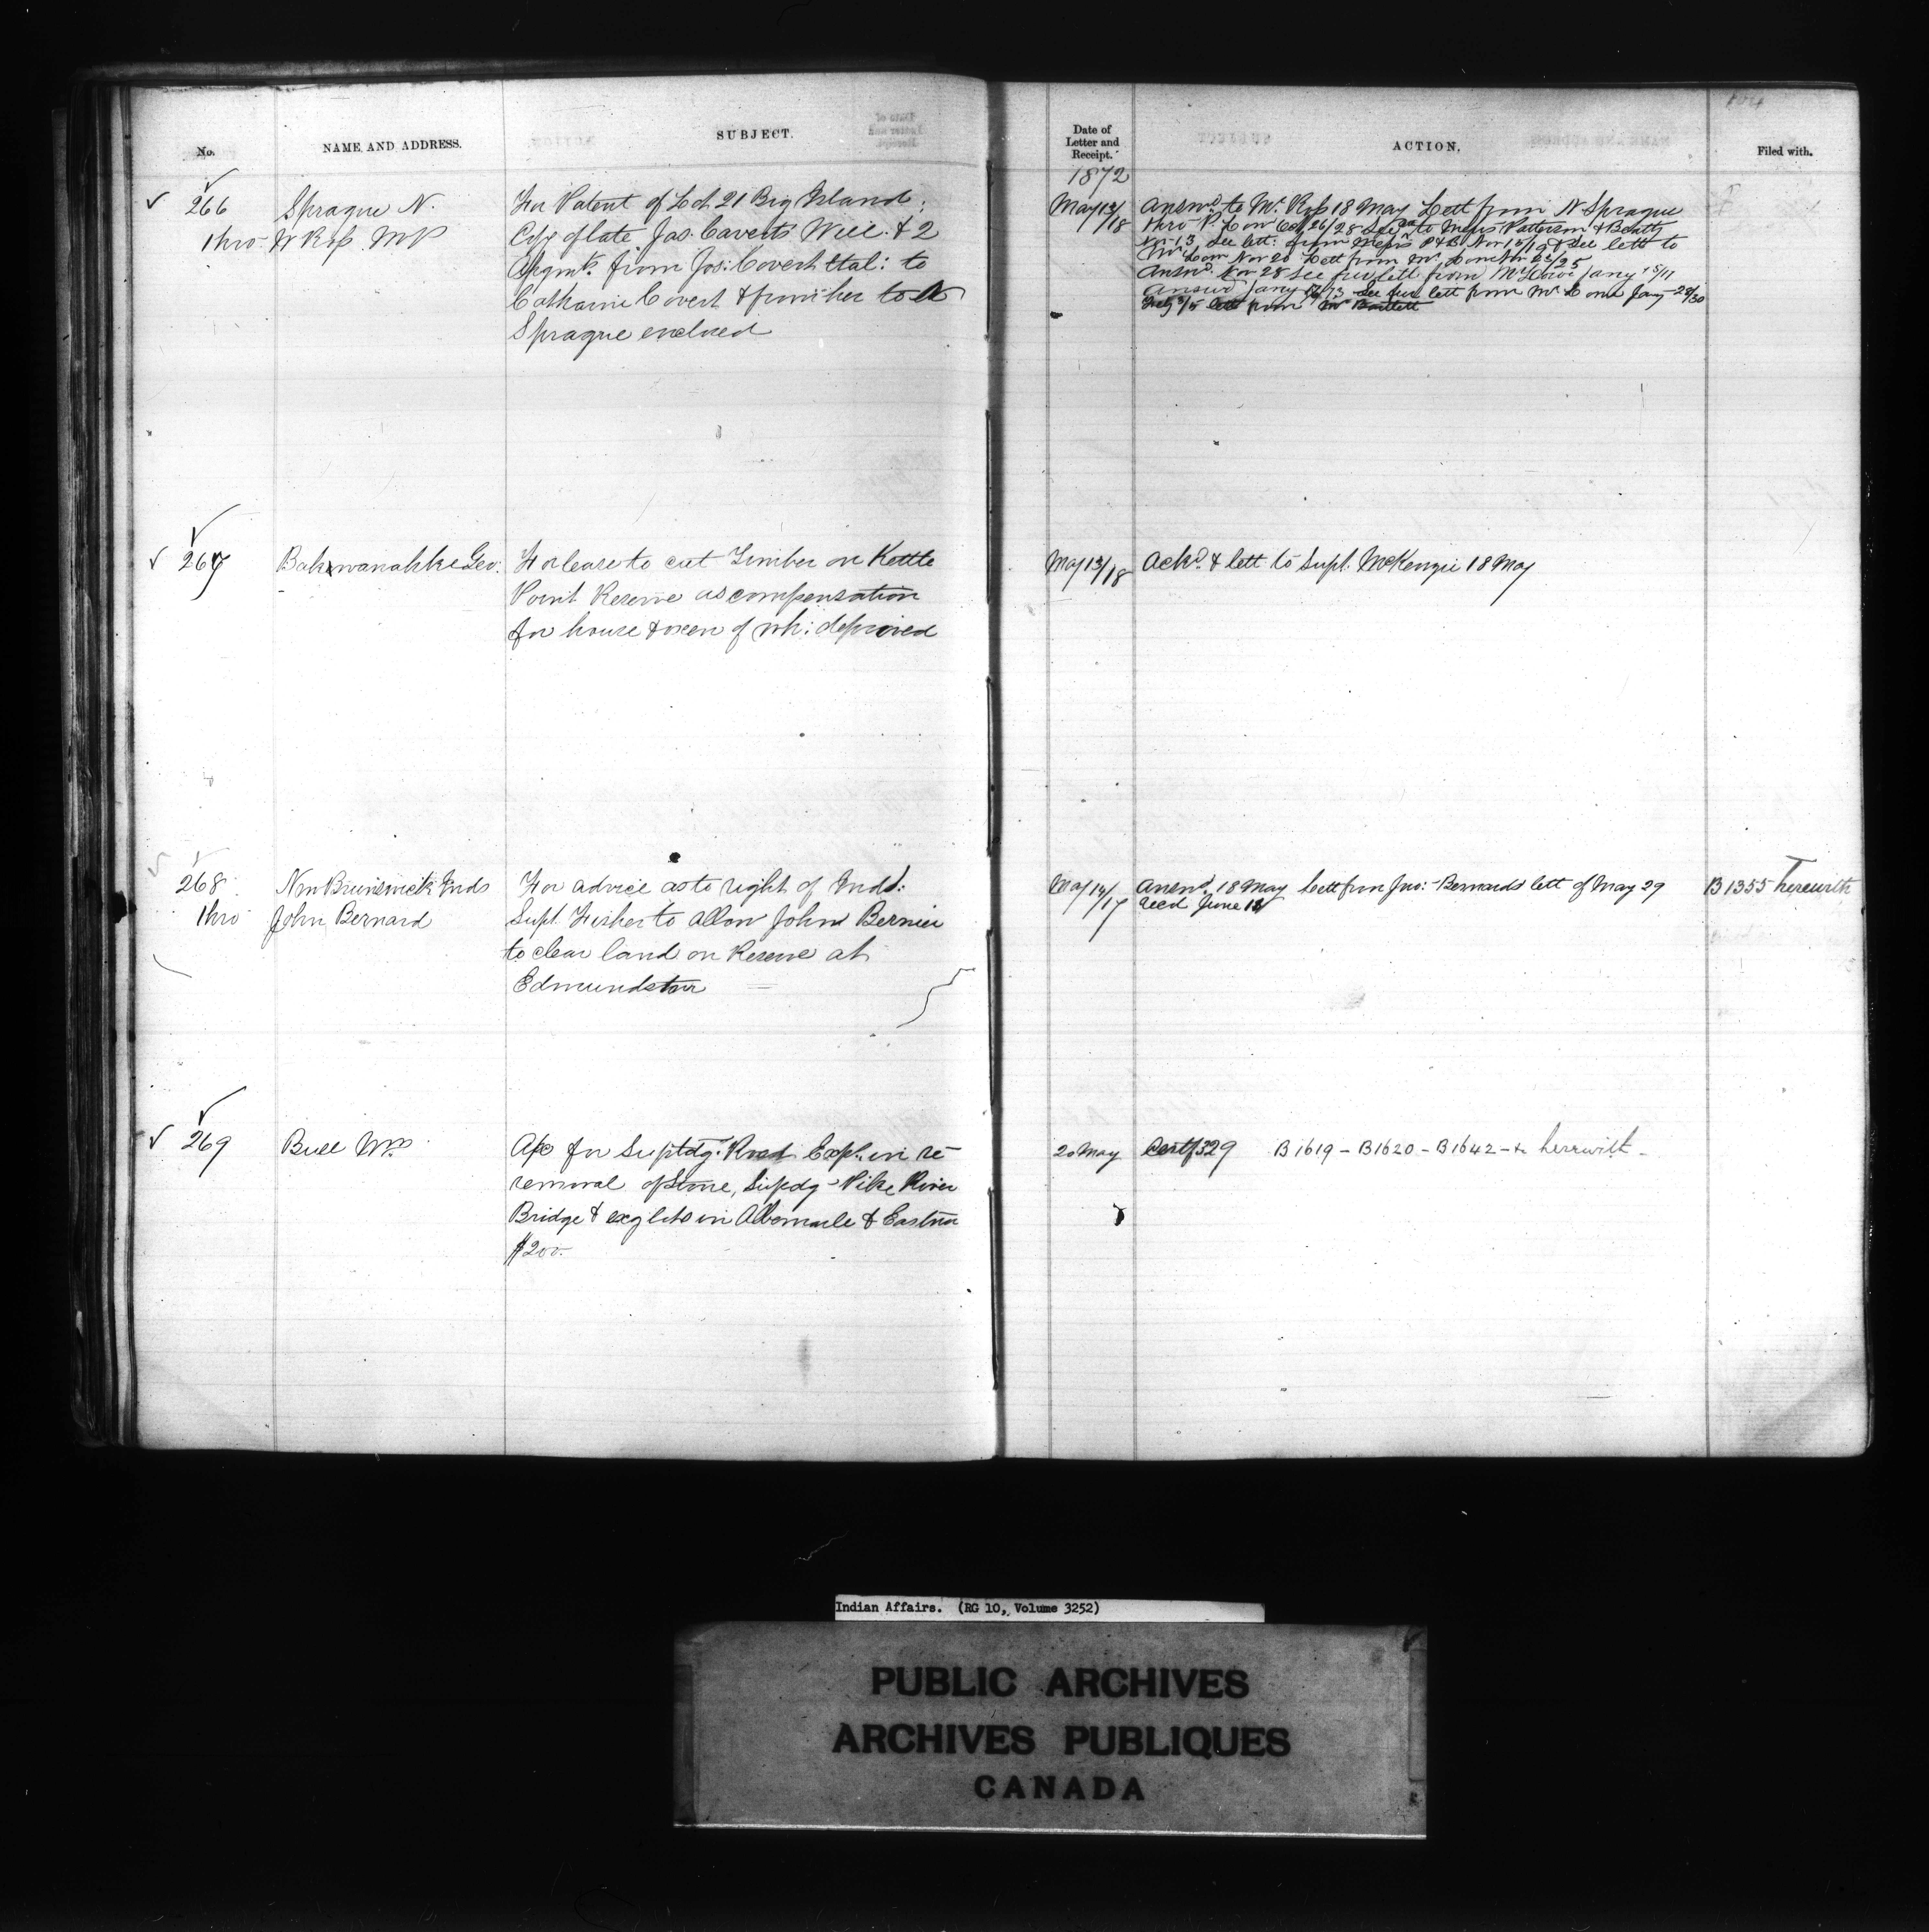 No.
NAME AND ADDRESS.
SUBJECT.
Date of
Letter and
Receipt.
ACTION.
Filed with.
104
1872
266
Sprague N.
thro W Ross MP
For Patent of Lot 21 Big Island.
Copy of late Jas. Coverts Will & 2
Asgmts. from Jos: Covert etal: to
Catharine Covert & from her to N
Sprague enclosed
May 12/18
Answd. to Mr. Ross 18 May Lett from N Sprague
thro P. Low Oct 26/28 See to Messrs Patterson & Beatty
Nov 13, See lett: from Messrs P&B Nov 15/19 & See lett to
Mr. Low Nov 20 Lett from Mr. Low Nov 22/25
Answd. Nov 28 See fur lett from Mr Low Jany 15/17
Answd Jany 73 See fur lett from Mr. Low Jany 28/30
lett from Mr Bartlett
267
Bahkwanahke Geo:
For lease to cut Timber on Kettle
Point Reserve as compensation
for house & oxen of wh: deprived
May 13/18
Ackd. & lett to Supt. McKenzie 18 May
268
New Brunswick Inds
thro John Bernard
For advice as to right of Indl:
Supt. Fisher to allow John Bernier
to clear land on Reserve at
Edmundston
May 14/17
Answd. 18 May Lett from Jno: Bernards lett of May 29
Recd June 18
B1355 herewith
269
Bull Wm
A/c for Suptdg. Road Expl. in re-
removal of Stone, Supdg Pike River
Bridge & exg lots in Albemarle & Eastnor
$200.
20 May
Certf 329 B1619 - B1620 - B1642 - & herewith -
Indian Affairs. (RG 10, Volume 3252)
PUBLIC ARCHIVES
ARCHIVES PUBLIQUES
CANADA